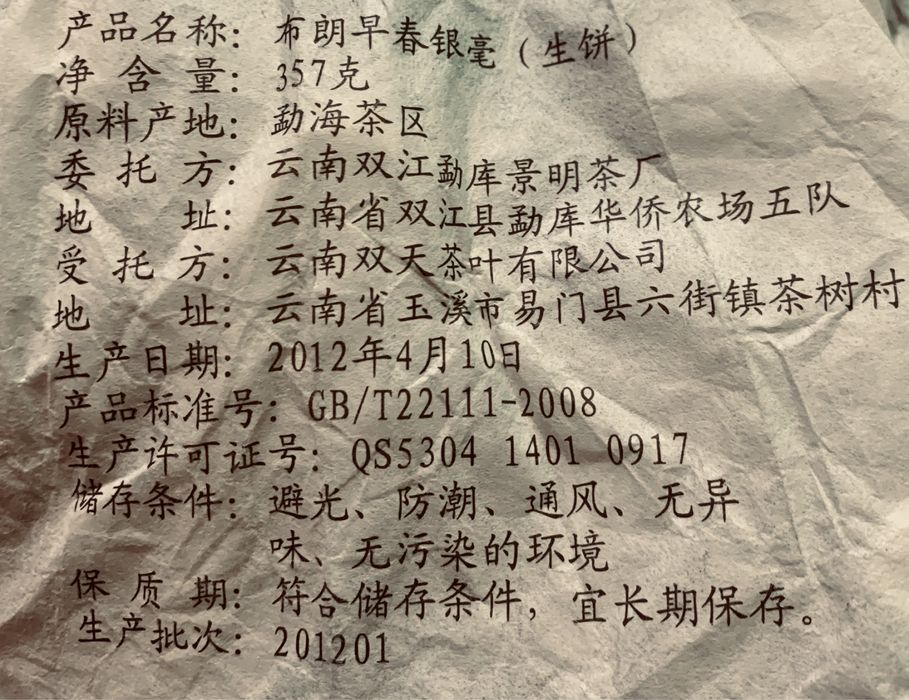 产品名称：布朗早春银毫（生饼）
净含量：357克
原料产地：勐海茶区
委托方：云南双江勐库景明茶厂
地址：云南省双江县勐库华侨农场五队
受托方：云南双天茶叶有限公司
地址：云南省玉溪市易门县六街镇茶树村
生产日期：2012年4月10日
产品标准号：GB/T22111-2008
生产许可证号：QS5304 1401 0917
储存条件：避光、防潮、通风、无异
味、无污染的环境
保质期：符合储存条件，宜长期保存。
生产批次：201201